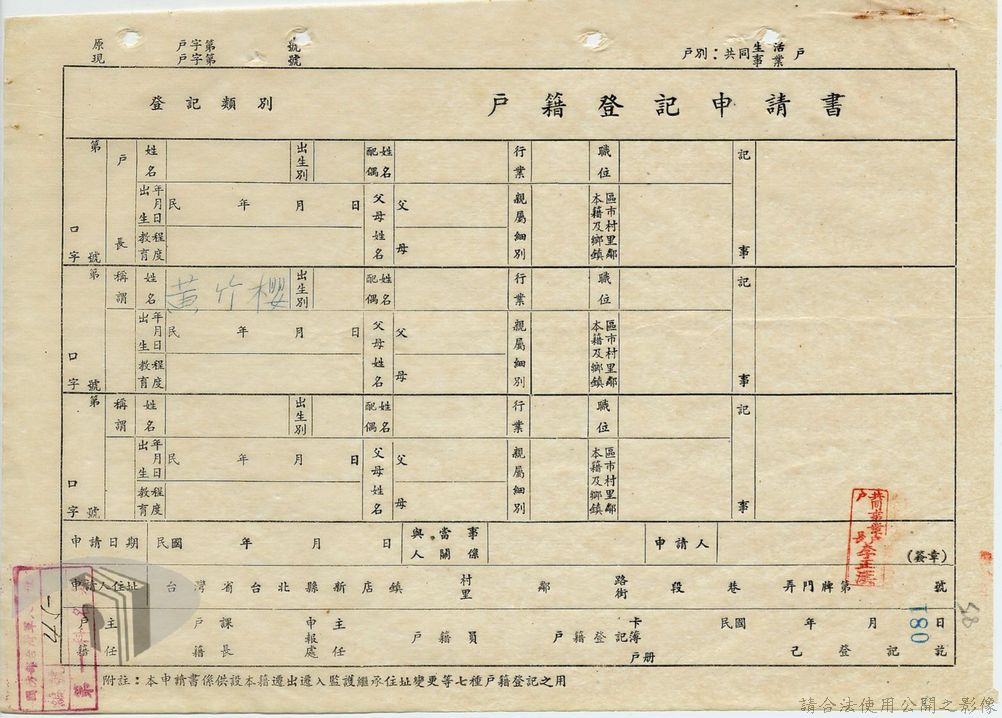 原 戶字第 號
現 戶字第 號
戶別：共同生活事業戶
登記類別
戶籍登記申請書
第 口字 號
戶長
姓名
出生別
配偶姓名
行業
職位
記事
出生年月日
民 年 月 日
父母姓名
父
母
親屬細別
本籍及鄉鎮區市村里鄰
教育程度
第 口字 號
稱謂
姓名
黃竹櫻
出生別
配偶姓名
行業
職位
記事
出生年月日
民 年 月 日
父母姓名
父
母
親屬細別
本籍及鄉鎮區市村里鄰
教育程度
第 口字 號
稱謂
姓名
出生別
配偶姓名
行業
職位
記事
出生年月日
民 年 月 日
父母姓名
父
母
親屬細別
本籍及鄉鎮區市村里鄰
教育程度
申請日期
民國 年 月 日
與當事人關係
申請人
(簽章)
共同事業戶
戶長
申請人住址
台灣省台北縣新店鎮 村里 鄰 路街 段 巷 弄門牌第 號
戶籍主任
戶籍課長
申報處主任
戶籍員
戶籍登記卡簿戶冊
民國 年 月 日
己登記訖
081
58
編號
第
附註：本申請書係供設本籍遷出遷入監護繼承住址變更等七種戶籍登記之用
請合法使用公開之影像